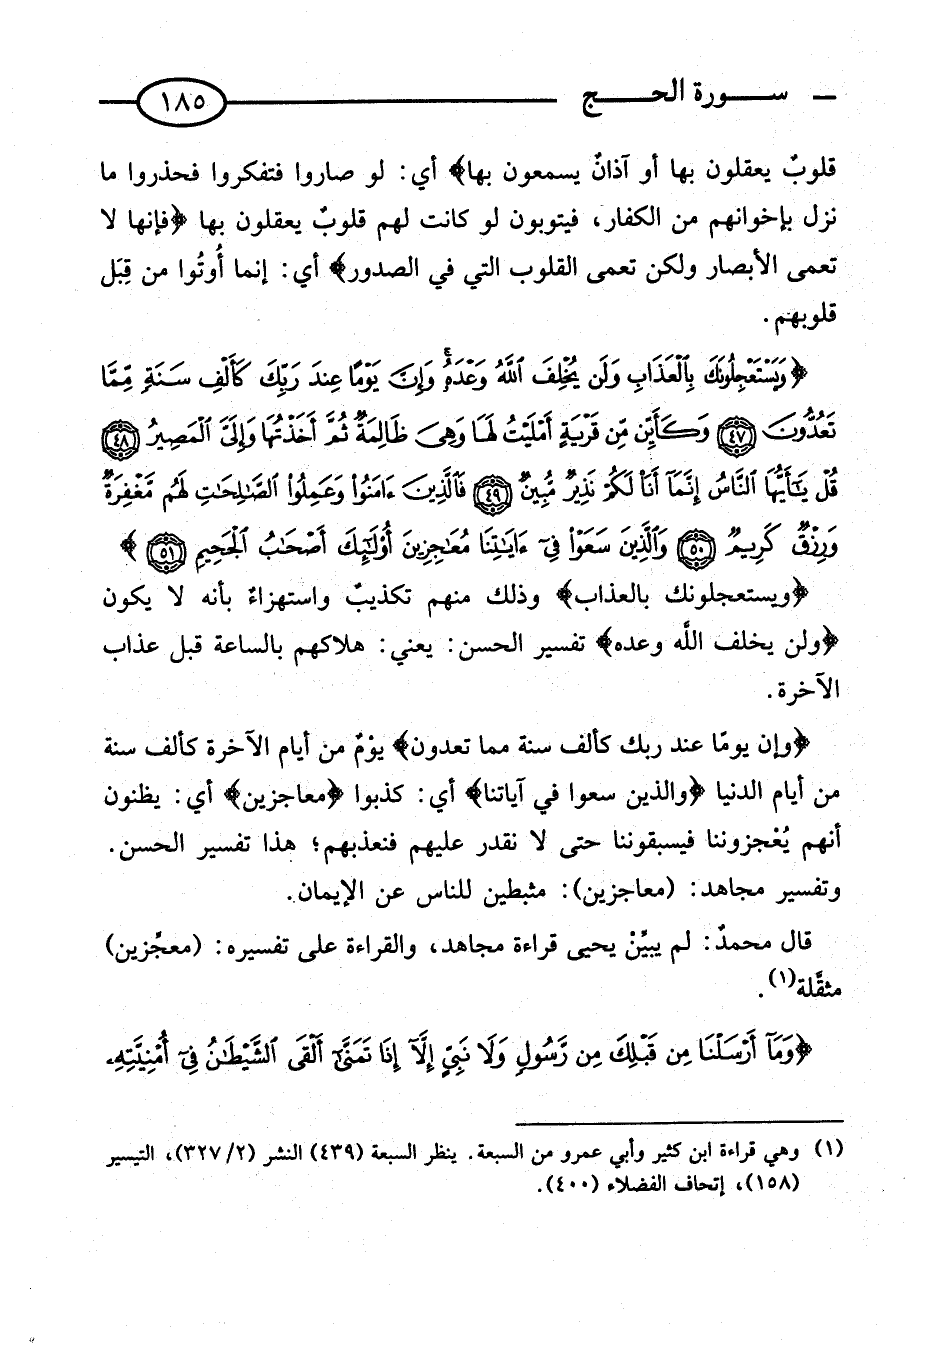 سورة الحج ١٨٥
قلوبٌ يعقلون بها أو آذانٌ يسمعون بها﴾ أي: لو صاروا فتفكروا فحذروا ما
نزل بإخوانهم من الكفار، فيتوبون لو كانت لهم قلوبٌ يعقلون بها ﴿فإنها لا
تعمى الأبصار ولكن تعمى القلوب التي في الصدور﴾ أي: إنما أُوتُوا من قِبَل
قلوبهم.
﴿وَيَسْتَعْجِلُونَكَ بِالْعَذَابِ وَلَن يُخْلِفَ اللَّهُ وَعْدَهُۥ وَإِنَّ يَوْمًا عِندَ رَبِّكَ كَأَلْفِ سَنَةٍ مِّمَّا
تَعُدُّونَ ﴿٤٧﴾ وَكَأَيِّن مِّن قَرْيَةٍ أَمْلَيْتُ لَهَا وَهِىَ ظَالِمَةٌ ثُمَّ أَخَذْتُهَا وَإِلَىَّ الْمَصِيرُ ﴿٤٨﴾
قُلْ يَٰٓأَيُّهَا النَّاسُ إِنَّمَآ أَنَا۠ لَكُمْ نَذِيرٌ مُّبِينٌ ﴿٤٩﴾ فَالَّذِينَ ءَامَنُوا۟ وَعَمِلُوا۟ الصَّٰلِحَٰتِ لَهُم مَّغْفِرَةٌ
وَرِزْقٌ كَرِيمٌ ﴿٥٠﴾ وَالَّذِينَ سَعَوْا۟ فِىٓ ءَايَٰتِنَا مُعَٰجِزِينَ أُو۟لَٰٓئِكَ أَصْحَٰبُ الْجَحِيمِ ﴿٥١﴾﴾
﴿ويستعجلونك بالعذاب﴾ وذلك منهم تكذيبٌ واستهزاءٌ بأنه لا يكون
﴿ولن يخلف اللَّه وعده﴾ تفسير الحسن: يعني: هلاكهم بالساعة قبل عذاب
الآخرة.
﴿وإن يومًا عند ربك كألف سنة مما تعدون﴾ يوْمٌ من أيام الآخرة كألف سنة
من أيام الدنيا ﴿والذين سعوا في آياتنا﴾ أي: كذبوا ﴿معاجزين﴾ أي: يظنون
أنهم يُعْجزوننا فيسبقوننا حتى لا نقدر عليهم فنعذبهم؛ هذا تفسير الحسن.
وتفسير مجاهد: (معاجزين): مثبطين للناس عن الإيمان.
قال محمدٌ: لم يبيِّنْ يحيى قراءة مجاهد، والقراءة على تفسيره: (معجِّزين)
مثقَّلة(١).
﴿وَمَآ أَرْسَلْنَا مِن قَبْلِكَ مِن رَّسُولٍ وَلَا نَبِىٍّ إِلَّآ إِذَا تَمَنَّىٰٓ أَلْقَى الشَّيْطَٰنُ فِىٓ أُمْنِيَّتِهِۦ
(١) وهي قراءة ابن كثير وأبي عمرو من السبعة. ينظر السبعة (٤٣٩) النشر (٢/٣٢٧)، التيسير
(١٥٨)، إتحاف الفضلاء (٤٠٠).